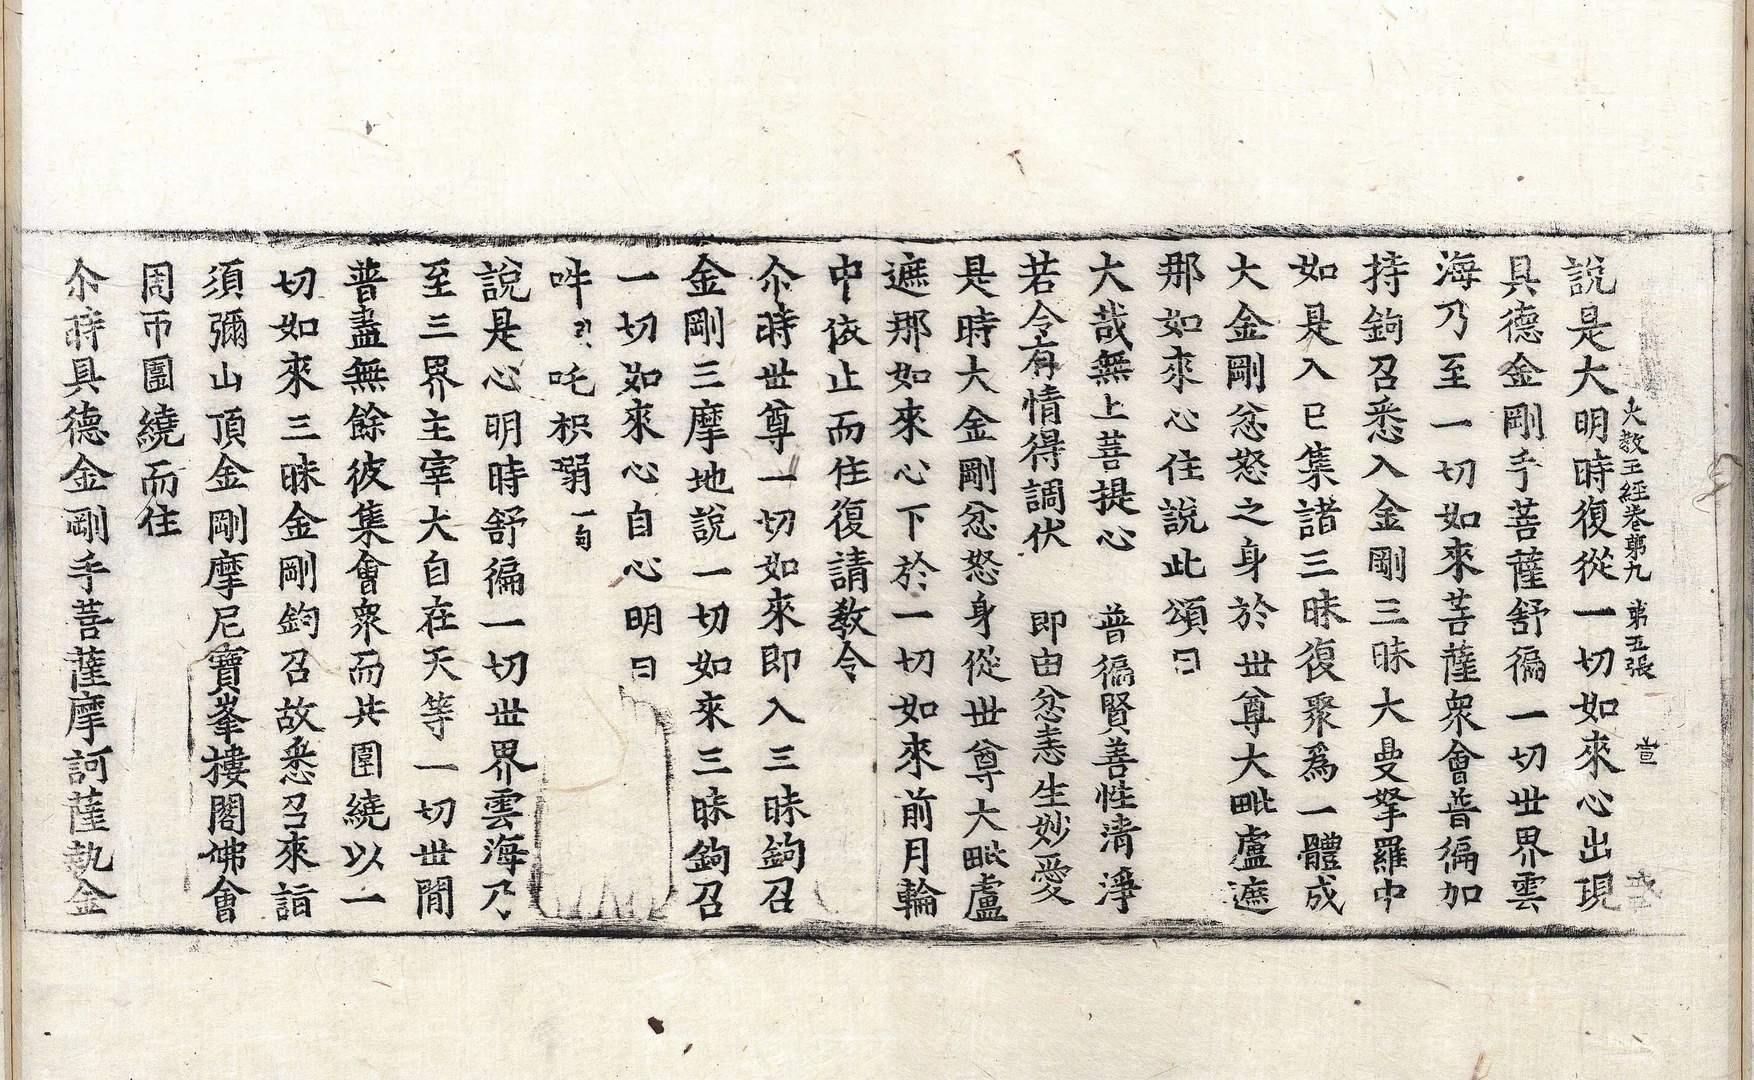 大教王經卷第九 第五張 壹
說是大明時復從一切如來心出現
具德金剛手菩薩舒徧一切世界雲
海乃至一切如來菩薩衆會普徧加
持鉤召悉入金剛三昧大曼拏羅中
如是入已集諸三昧復聚爲一體成
大金剛忿怒之身於世尊大毗盧遮
那如來心住說此頌曰
大哉無上菩提心 普徧賢善性清淨
若令有情得調伏 即由忿恚生妙愛
是時大金剛忿怒身從世尊大毗盧
遮那如來心下於一切如來前月輪
中依止而住復請教令
尒時世尊一切如來即入三昧鉤召
金剛三摩地說一切如來三昧鉤召
一切如來心自心明曰
吽引吒枳弱一句
說是心明時舒徧一切世界雲海乃
至三界主宰大自在天等一切世間
普盡無餘彼集會衆而共圍繞以一
切如來三昧金剛鉤召故悉召來詣
須彌山頂金剛摩尼寶峯樓閣佛會
周帀圍繞而住
尒時具德金剛手菩薩摩訶薩執金